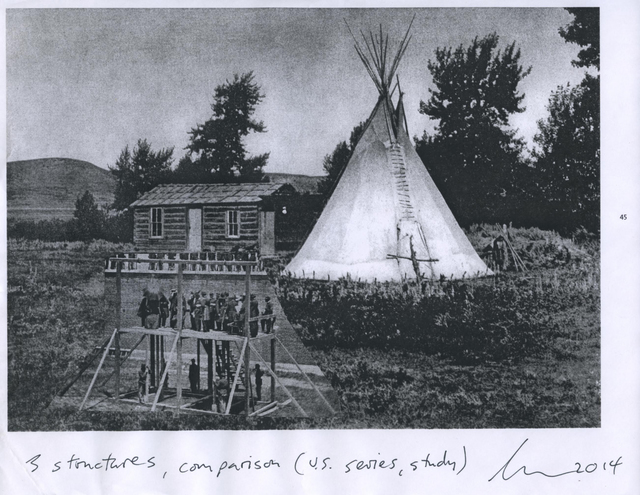 45
3 structures, comparison (U.S. series, study) 2014